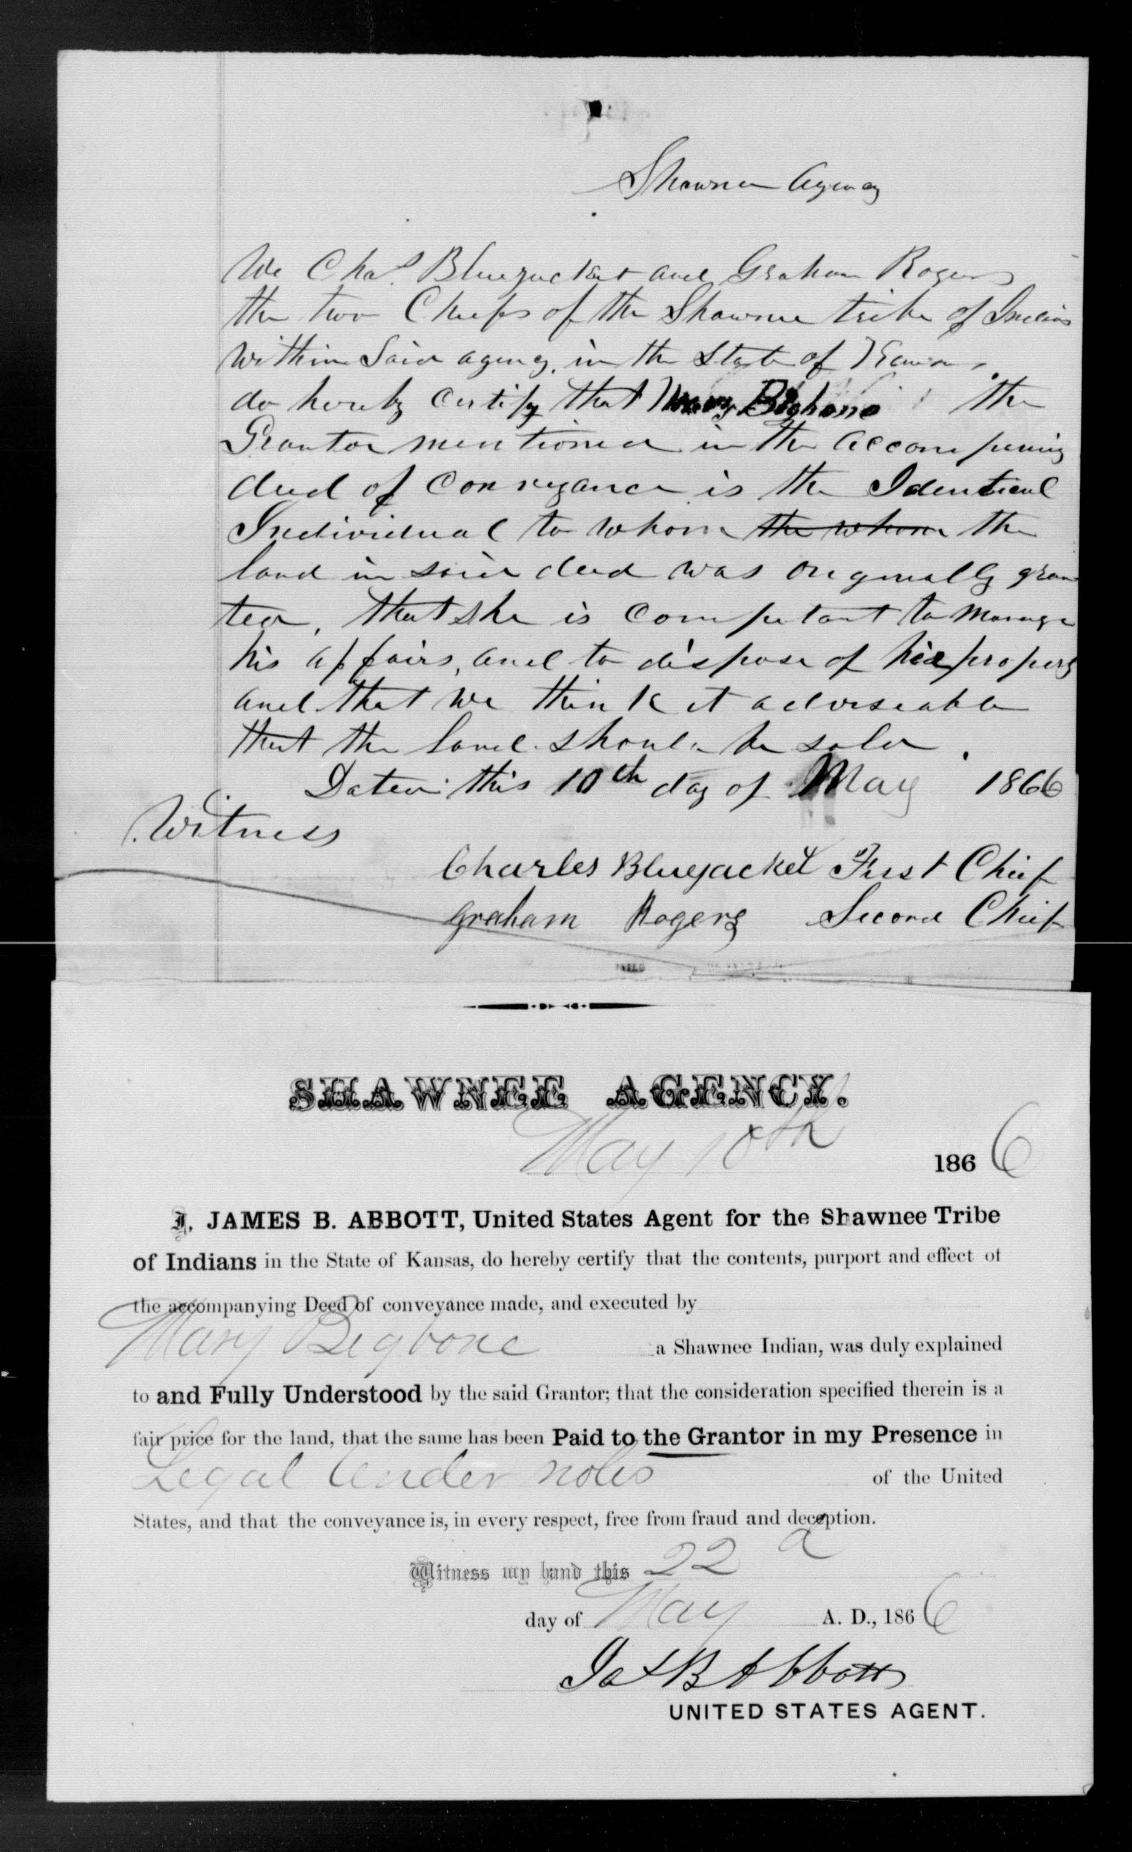 Shawnee Agency
We Chas. Bluejacket and Graham Rogers
the two Chiefs of the Shawnee tribe of Indians
within Said agency, in the State of Kansas,
do hereby certify that Mary Bigbone the
Grantor mentioned in the accompaning
deed of conveyance is the Identical
Individual to whom the whom the
land in said deed was originally gran
ted, that she is competant to manage
his affairs, and to dispose of his property
and that we think it adviseable
that the land should be sold.
Dated this 10th day of May 1866
Witness
Charles Bluejacket First Chief
Graham Rogers Second Chief
SHAWNEE AGENCY.
May 10th 1866
I, JAMES B. ABBOTT, United States Agent for the Shawnee Tribe
of Indians in the State of Kansas, do hereby certify that the contents, purport and effect of
the accompanying Deed of conveyance made, and executed by
Mary Bigbone a Shawnee Indian, was duly explained
to and Fully Understood by the said Grantor; that the consideration specified therein is a
fair price for the land, that the same has been Paid to the Grantor in my Presence in
Legal tender notes of the United
States, and that the conveyance is, in every respect, free from fraud and deception.
Witness my hand this 22d
day of May A. D., 1866
Jas B Abbott
UNITED STATES AGENT.